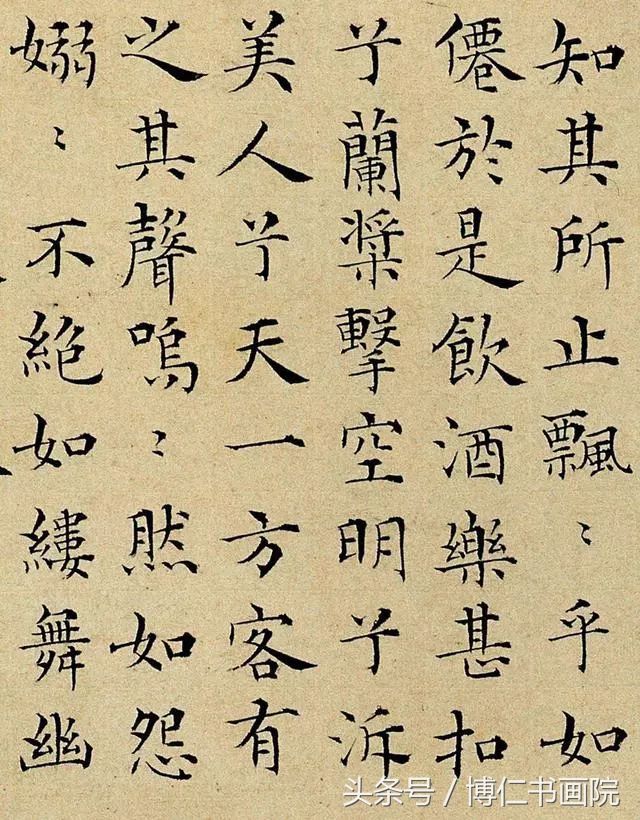 知其所止飄〻乎如
僊於是飲酒樂甚扣
兮蘭槳擊空明兮泝
美人兮天一方客有
之其聲嗚〻然如怨
嫋〻不絶如縷舞幽
头条号 / 博仁书画院